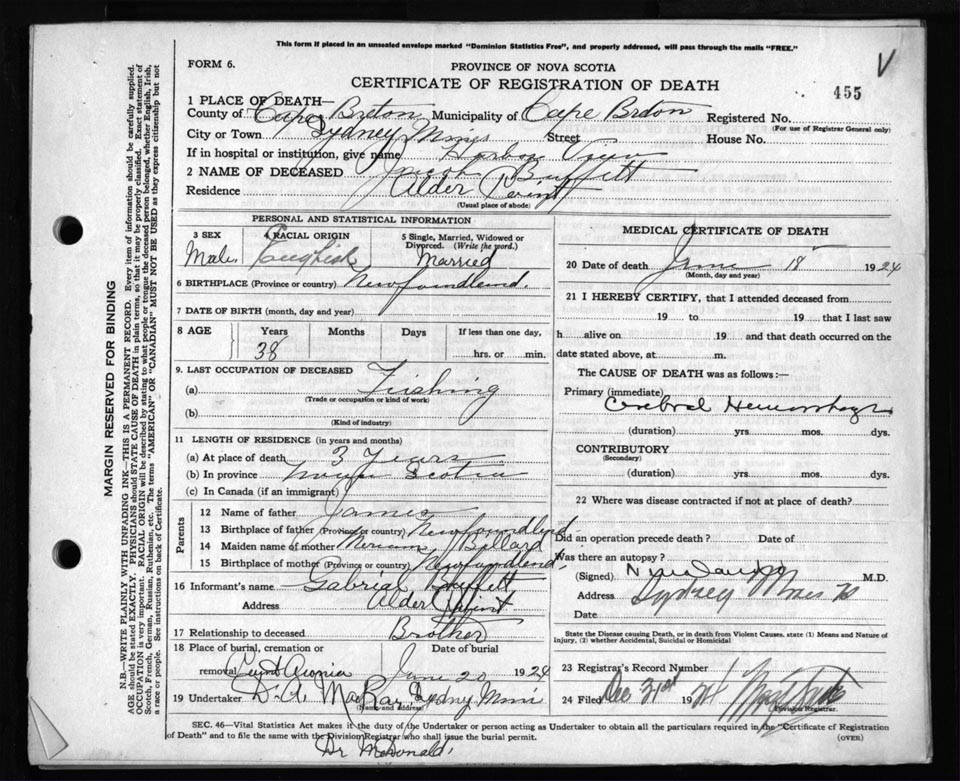 This form if placed in an unsealed envelope marked "Dominion Statistics Free", and properly addressed, will pass through the mails "FREE."
FORM 6.
PROVINCE OF NOVA SCOTIA
CERTIFICATE OF REGISTRATION OF DEATH
455
1 PLACE OF DEATH—
County of Cape Breton Municipality of Cape Breton Registered No.
(For use of Registrar General only)
City or Town Sydney Mines Street House No.
If in hospital or institution, give name Harbor View
2 NAME OF DECEASED Buffett
Residence Alder Point
(Usual place of abode)
PERSONAL AND STATISTICAL INFORMATION
3 SEX 4 RACIAL ORIGIN 5 Single, Married, Widowed or Divorced. (Write the word.)
Male English Married
6 BIRTHPLACE (Province or country) Newfoundlend.
7 DATE OF BIRTH (month, day and year)
8 AGE Years Months Days If less than one day,
38 hrs. or min.
9. LAST OCCUPATION OF DECEASED
(a) Fishing
(Trade or occupation or kind of work)
(b)
(Kind of industry)
11 LENGTH OF RESIDENCE (in years and months)
(a) At place of death 3 Years
(b) In province Nova Scotia
(c) In Canada (if an immigrant)
Parents
12 Name of father James
13 Birthplace of father (Province or country) Newfoundlend
14 Maiden name of mother Billard
15 Birthplace of mother (Province or country) Newfoundlend.
16 Informant's name Gabrial Buffett
Address Alder Point
17 Relationship to deceased Brother
18 Place of burial, cremation or Date of burial
removal June 20 1924
19 Undertaker D. A. MacRae, Sydney Mines
(Name and address)
MEDICAL CERTIFICATE OF DEATH
20 Date of death June 18 1924
(Month, day and year)
21 I HEREBY CERTIFY, that I attended deceased from
19 to 19 that I last saw
h alive on 19 and that death occurred on the
date stated above, at m.
The CAUSE OF DEATH was as follows:—
Primary (immediate)
Cerebral Hemorrhage
(duration) yrs. mos. dys.
CONTRIBUTORY
(Secondary)
(duration) yrs. mos. dys.
22 Where was disease contracted if not at place of death?
Did an operation precede death? Date of
Was there an autopsy?
(Signed) M.D.
Address Sydney Mines
Date
State the Disease causing Death, or in death from Violent Causes, state (1) Means and Nature of
Injury, (2) whether Accidental, Suicidal or Homicidal
23 Registrar's Record Number
24 Filed Dec 31st 1924
Division Registrar.
SEC. 46—Vital Statistics Act makes it the duty of the Undertaker or person acting as Undertaker to obtain all the particulars required in the "Certificate of Registration
of Death" and to file the same with the Division Registrar who shall issue the burial permit.
(OVER)
Dr McDonald.
MARGIN RESERVED FOR BINDING
N.B.—WRITE PLAINLY WITH UNFADING INK—THIS IS A PERMANENT RECORD. Every item of information should be carefully supplied.
AGE should be stated EXACTLY. PHYSICIANS should STATE CAUSE OF DEATH in plain terms, so that it may be properly classified. Exact statement of
OCCUPATION is very important. RACIAL ORIGIN will be described by stating to what people or tongue the deceased person belonged, whether English, Irish,
Scotch, French, German, Russian, Ruthenian, etc. The terms "AMERICAN" OR "CANADIAN" MUST NOT BE USED as they express citizenship but not
a race or people. See instructions on back of Certificate.